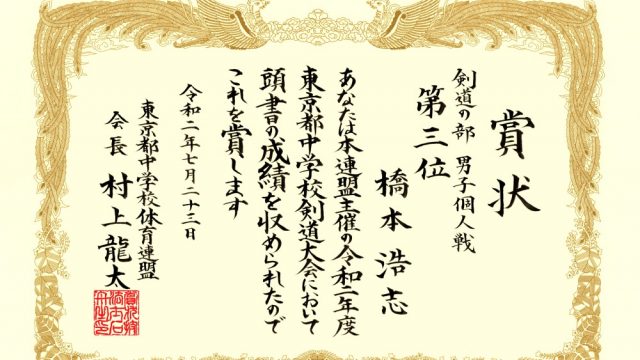 賞状
剣道の部 男子個人戦
第三位
橋本浩志
あなたは本連盟主催の令和二年度
東京都中学校剣道大会において
頭書の成績を収められたので
これを賞します
令和二年七月二十三日
東京都中学校体育連盟
会長 村上龍太